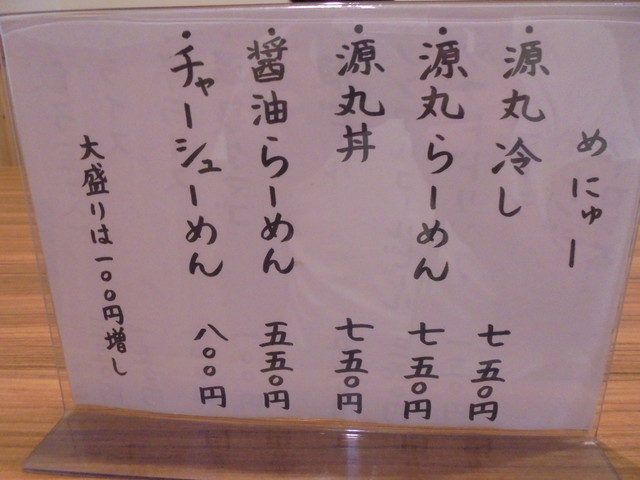 めにゅー
・源丸冷し 七五〇円
・源丸らーめん 七五〇円
・源丸丼 七五〇円
・醤油らーめん 五五〇円
・チャーシューめん 八〇〇円
大盛りは一〇〇円増し